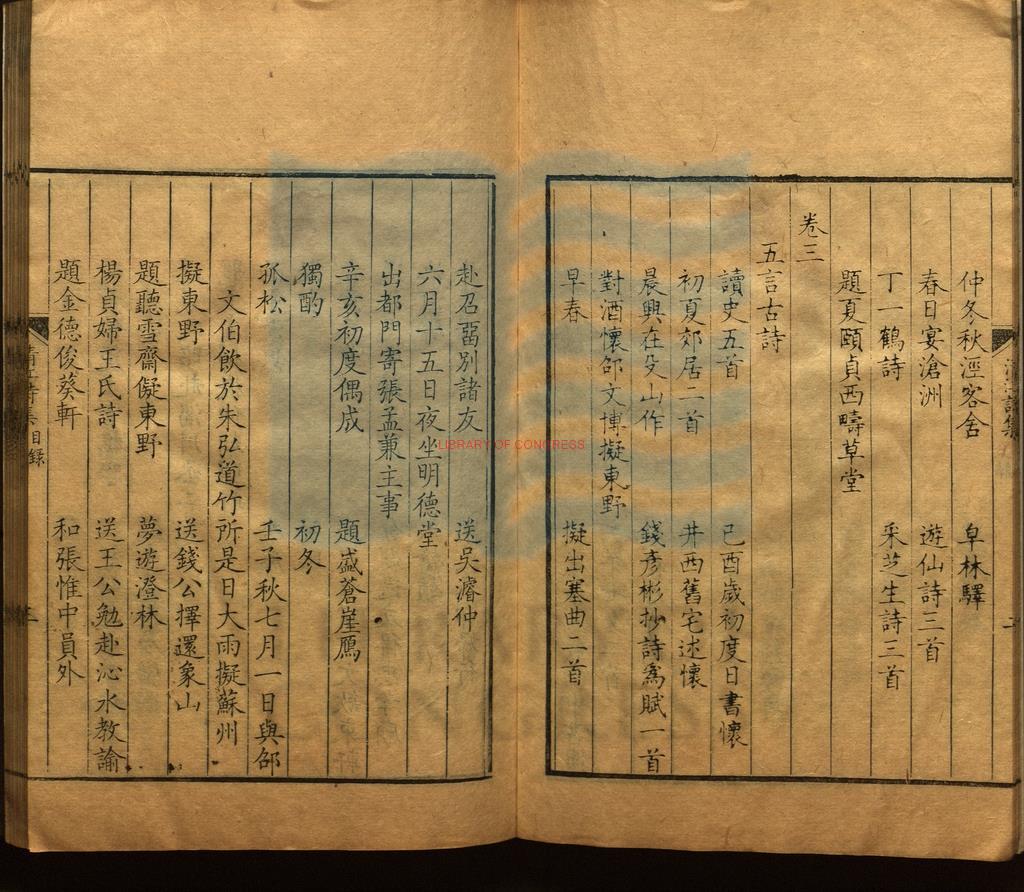 仲冬秋涇客舍 皁林驛
春日宴滄洲 遊仙詩三首
丁一鶴詩 采芝生詩二首
題夏頤貞西疇草堂
卷三
五言古詩
讀史五首 己酉歲初度日書懷
初夏郊居二首 井西舊宅述懷
晨興在殳山作 錢彦彬抄詩爲賦一首
對酒懷邵文博擬東野
早春 擬出塞曲二首
赴召畱別諸友 送吴濬仲
六月十五日夜坐明德堂
出都門寄張孟兼主事
辛亥初度偶成 題盛蒼崖鴈
獨酌 初冬
孤松 壬子秋七月一日與邵
文伯飲於朱弘道竹所是日大雨擬蘇州
擬東野 送錢公擇還象山
題聽雪齋儗東野 夢遊澄林
楊貞婦王氏詩 送王公勉赴沁水教諭
題金德俊葵軒 和張惟中員外
詩集 目録
LIBRARY OF CONGRESS